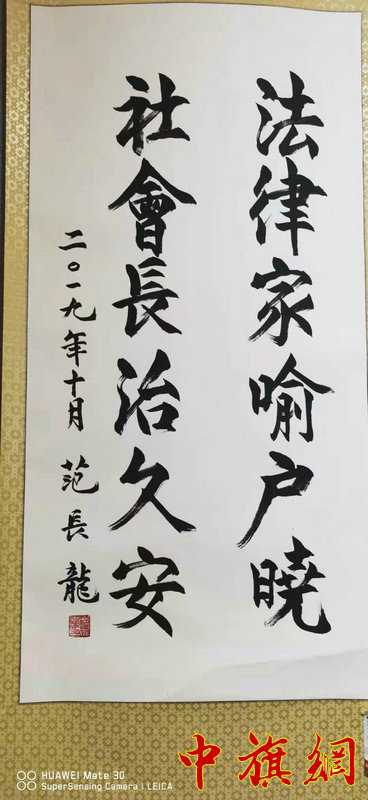 法律家喻户晓
社會長治久安
二〇一九年十月 范長龍
HUAWEI Mate 30
SuperSensing Camera | LEICA
中旗網